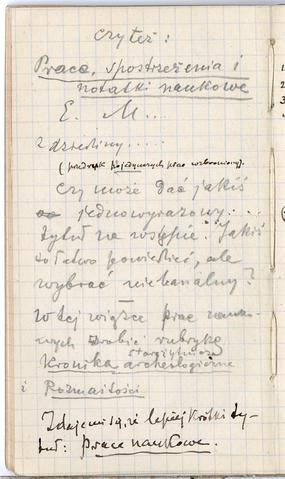 czy też:
Prace, spostrzeżenia i
notatki naukowe
E. M...
z dziedziny.....
(przedruk pojedynczych prac wzbroniony).
Czy może dać jakiś
jednowyrazowy....
tytuł na wstępie? Jakiś
łatwo powiedzieć, ale
wybrać niebanalny?
W tej wiązce prac nauko-
wych zrobić rubrykę
starożytnicza
Kronika archeologiczne
i Rozmaitości
Zdaje mi się, że lepiej krótki ty-
tuł: Prace naukowe.